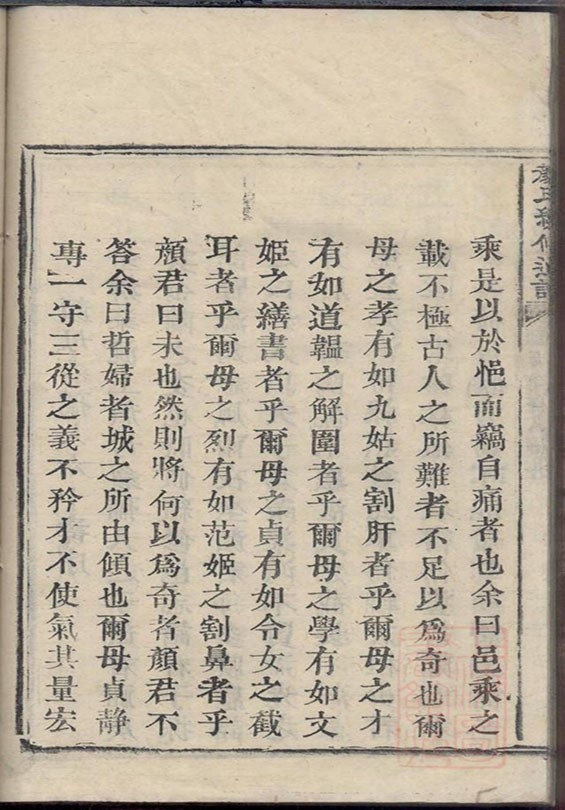 乘是以於悒而竊自痛者也余曰邑乘之
載不極古人之所難者不足以爲奇也爾
母之孝有如九姑之割肝者乎爾母之才
有如道韞之解圍者乎爾母之學有如文
姬之繕書者乎爾母之貞有如令女之截
耳者乎爾母之烈有如范姬之割鼻者乎
顏君曰未也然則將何以爲奇者顏君不
答余曰哲婦者城之所由傾也爾母貞靜
專一守三從之義不矜才不使氣其量宏